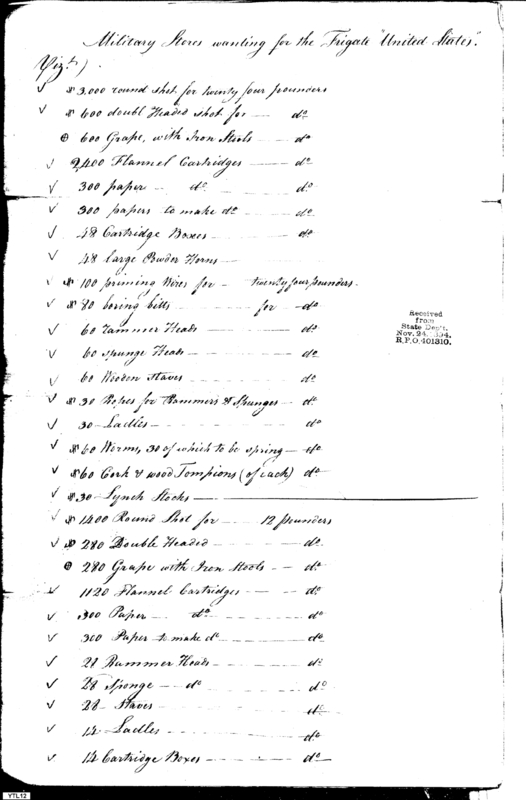 Military Stores wanting for the Frigate "United States".
Vizt.)
✓ # 3,000 round shot for twenty four pounders
✓ # 600 doubl Headed shot for — do
⊕ 600 Grape, with Iron Stools — do
✓ 2,400 Flannel Cartridges — do
✓ 300 paper — do — do
✓ 300 papers to make do — do
✓ 48 Cartridge Boxes — do
✓ 48 large Powder Horns —
✓ # 100 priming Wires for — twenty four pounders.
✓ # 80 boring bitts — for — do
✓ 60 rammer Heads — do
✓ 60 spunge Heads — do
✓ 60 Wooden Staves — do
✓ # 30 Ropes for Rammers & Spunges — do
✓ 30 — Ladles — do
✓ # 60 Worms, 30 of which to be spring — do
✓ # 60 Cork & wood Tompions (of each) do
✓ # 30 — Lynch Stocks —
✓ # 1400 Round Shot for — 12 pounders
✓ # 280 Double Headed — do
⊕ 280 Grape with Iron Stools — do
✓ 1120 Flannel Cartridges — do
✓ 300 Paper — do — do
✓ 300 Paper to make do — do
✓ 28 Rammer Heads — do
✓ 28 Sponge — do — do
✓ 28 — Staves — do
✓ 14 Ladles — do
✓ 14 Cartridge Boxes — do
Received
from
State Dep't.
Nov. 24, 1894.
R.P.O. 401310.
YTL12